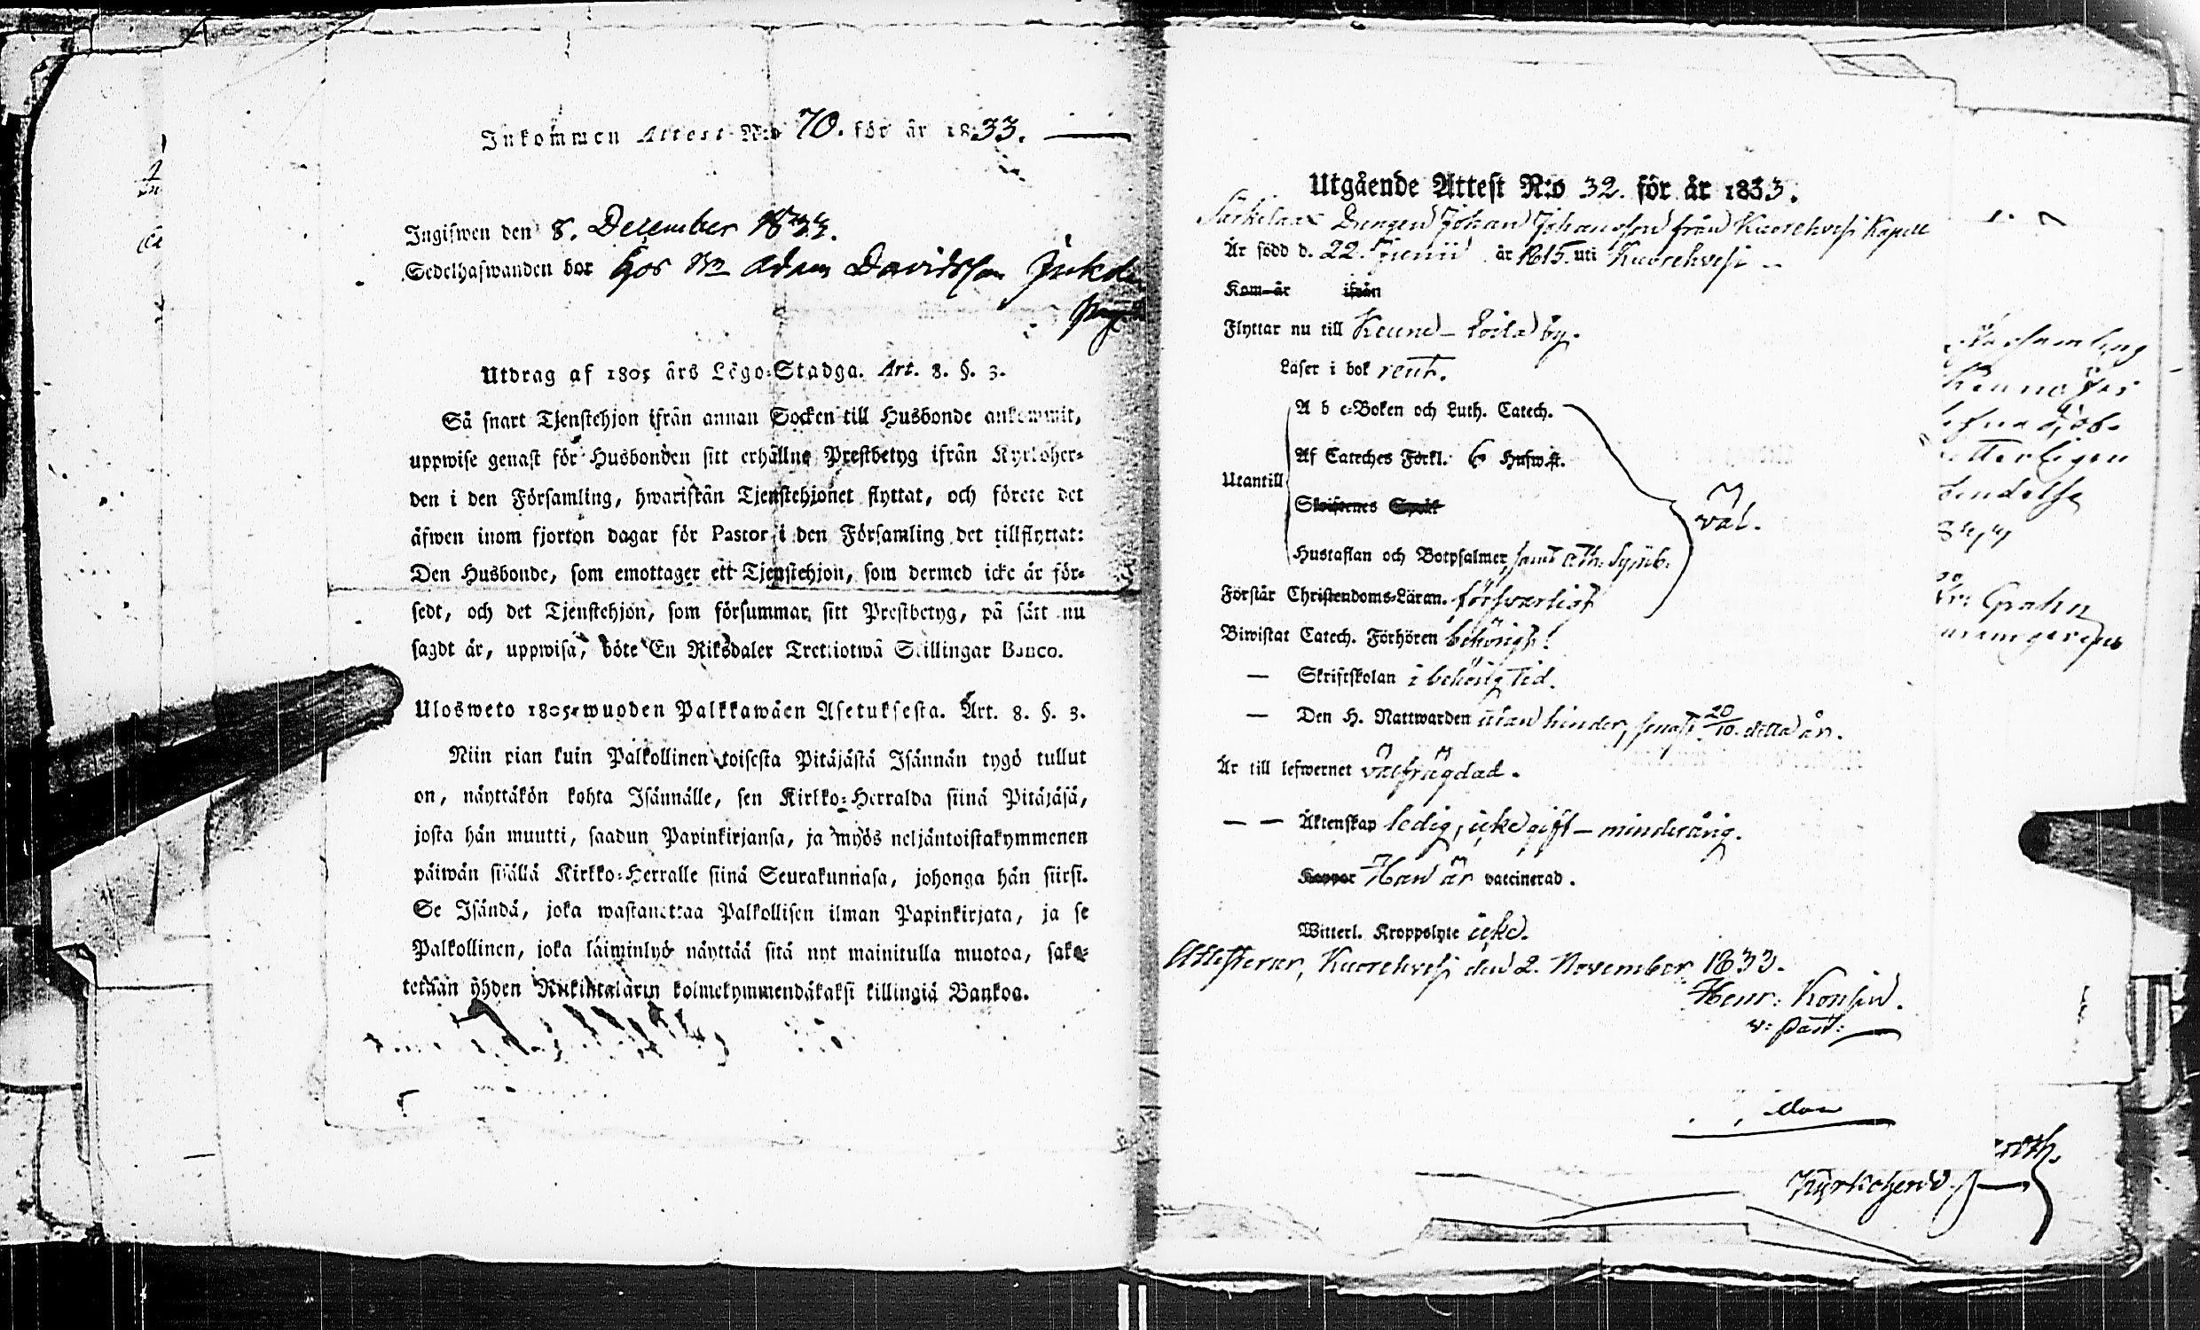 Inkommen Attest N:o 70. för år 1833.
Ingifwen den 8. December 1833.
Sedelhafwanden bor hos Adam Davidsson
Utdrag af 1805 års Lego-Stadga. Art. 8. §. 3.
Så snart Tjenstehjon ifrån annan Socken till Husbonde ankommit,
uppwise genast för Husbonden sitt erhållne Prestbetyg ifrån Kyrkoher-
den i den Församling, hwarifrån Tjenstehjonet flyttat, och förete det
äfwen inom fjorton dagar för Pastor i den Församling det tillflyttat:
Den Husbonde, som emottager ett Tjenstehjon, som dermed icke är för-
sedt, och det Tjenstehjon, som försummar sitt Prestbetyg, på sätt nu
sagdt är, uppwisa, böte En Riksdaler Trettiotwå Skillingar Banco.
Ulosweto 1805-wuoden Palkkawäen Asetuksesta. Art. 8. §. 3.
Niin pian kuin Palkollinen toisesta Pitäjästä Isännän tygö tullut
on, näyttäkön kohta Isännälle, sen Kirkko-Herralda siinä Pitäjäsä,
josta hän muutti, saadun Papinkirjansa, ja myös neljäntoistakymmenen
päiwän sisällä Kirkko-Herralle siinä Seurakunnasa, johonga hän siirsi.
Se Isändä, joka wastanottaa Palkollisen ilman Papinkirjata, ja se
Palkollinen, joka läiminlyö näyttää sitä nyt mainitulla muotoa, sako-
tetaan yhden Riikintalarin kolmekymmendäkaksi killingiä Bankoa.
Utgående Attest N:o 32. för år 1833.
Drengen Johan Johansson från Kuorehvesi Kapell
Är född d. 22. Junii år 1815. uti Kuorehvesi
Kom år ifrån
Flyttar nu till Keuru Loila by.
Läser i bok rent.
A b c-Boken och Luth. Catech.
Af Cateches Förkl. 6 Hufwst.
Utantill
Skriftenes Språk
väl.
Hustaflan och Botpsalmer, samt Ath. Symb.
Förstår Christendoms-Läran. försvarligt
Biwistat Catech. Förhören behörigt.
— Skriftskolan i behörig tid.
— Den H. Nattwarden utan hinder, senast 20/10. detta år.
Är till lefwernet välfrägdad.
— — Äktenskap ledig, icke gift – minderårig.
Koppor Han är vaccinerad.
Witterl. Kroppslyte icke.
Attesterar, Kuorehvesi den 2. November 1833.
Henr: Konsin.
v: past: